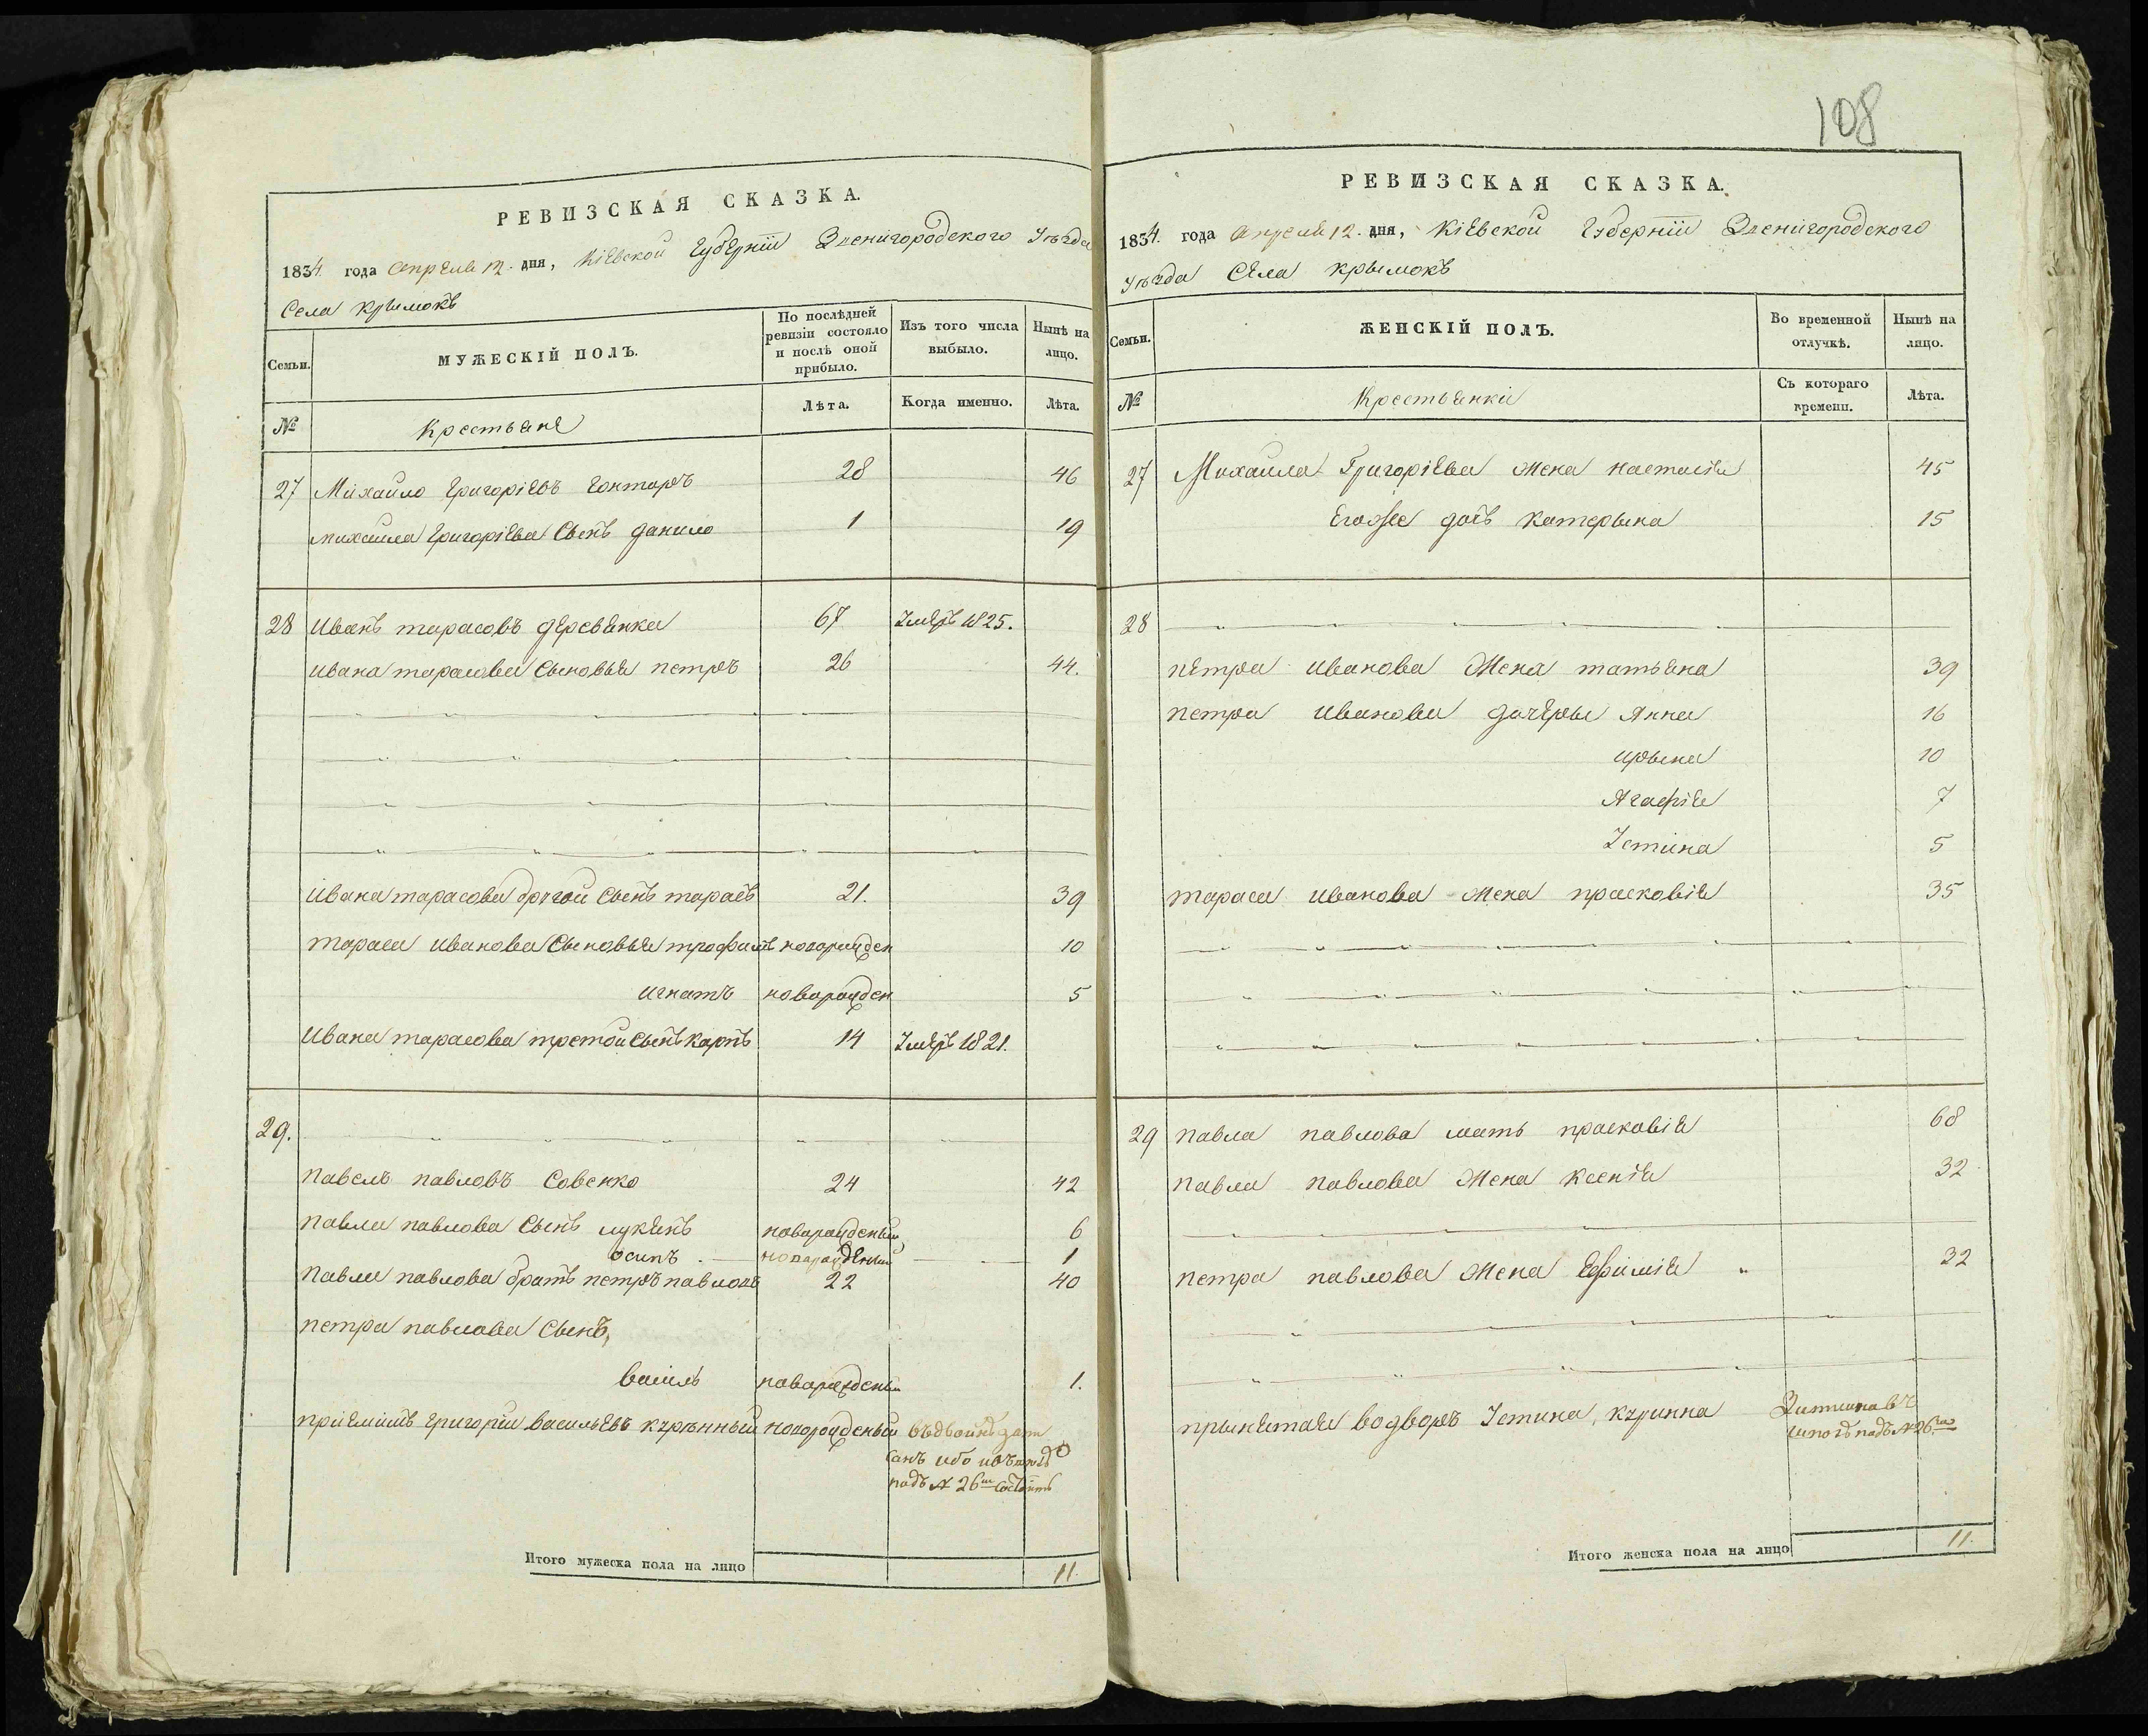 РЕВИЗСКАЯ СКАЗКА.
1834. года Апреля 12. дня, Кіевской Губерніи Звенигородского Уѣзда
Села Крымокъ
Семьи.
МУЖЕСКІЙ ПОЛЪ.
По послѣдней ревизіи состояло и послѣ оной прибыло.
Изъ того числа выбыло.
Нынѣ на лицо.
№
Крестьяне
Лѣта.
Когда именно.
Лѣта.
27 Михайло Григоріевъ Гонтаръ 28 46
михайла Григоріева Сынъ данило 1 19
28 Иванъ тарасовъ деревянка 67 Умеръ 1825.
Ивана тарасова Сыновья петръ 26 44.
Ивана тарасова другой Сынъ тарасъ 21. 39
тараса иванова Сыновья трофимъ новорожден 10
игнатъ новорожден 5
Ивана тарасова третой Сынъ карпъ 14 Умеръ 1821.
29.
павелъ павловъ Совенко 24 42
павла павлова Сынъ лукянъ новорожденый 6
осипъ новорожденый 1
павла павлова братъ петръ павловъ 22 40
петра павлова Сынъ,
василь новорожденый 1.
пріемишъ григорій васильевъ новорожденый
санъ ибо
подъ № 26 состоитъ
Итого мужеска пола на лицо 11.
108
РЕВИЗСКАЯ СКАЗКА.
1834. года Апреля 12. дня, Кіевской Губерніи Звенигородского
Уѣзда Села Крымокъ
Семьи.
ЖЕНСКІЙ ПОЛЪ.
Во временной отлучкѣ.
Нынѣ на лицо.
№
Крестьянки
Съ котораго времени.
Лѣта.
27 Михайла Григоріева жена настасія 45
Егожее дочъ катерына 15
28
петра иванова жена татьяна 39
петра иванова дочеры Анна 16
ирына 10
Агафія 7
Устина 5
тараса иванова жена прасковія 35
29 павла павлова мать прасковія 68
павла павлова жена ксенія 32
петра павлова жена Ефимія 32
прынятая водворъ Устина,
подъ № 26
Итого женска пола на лицо 11.